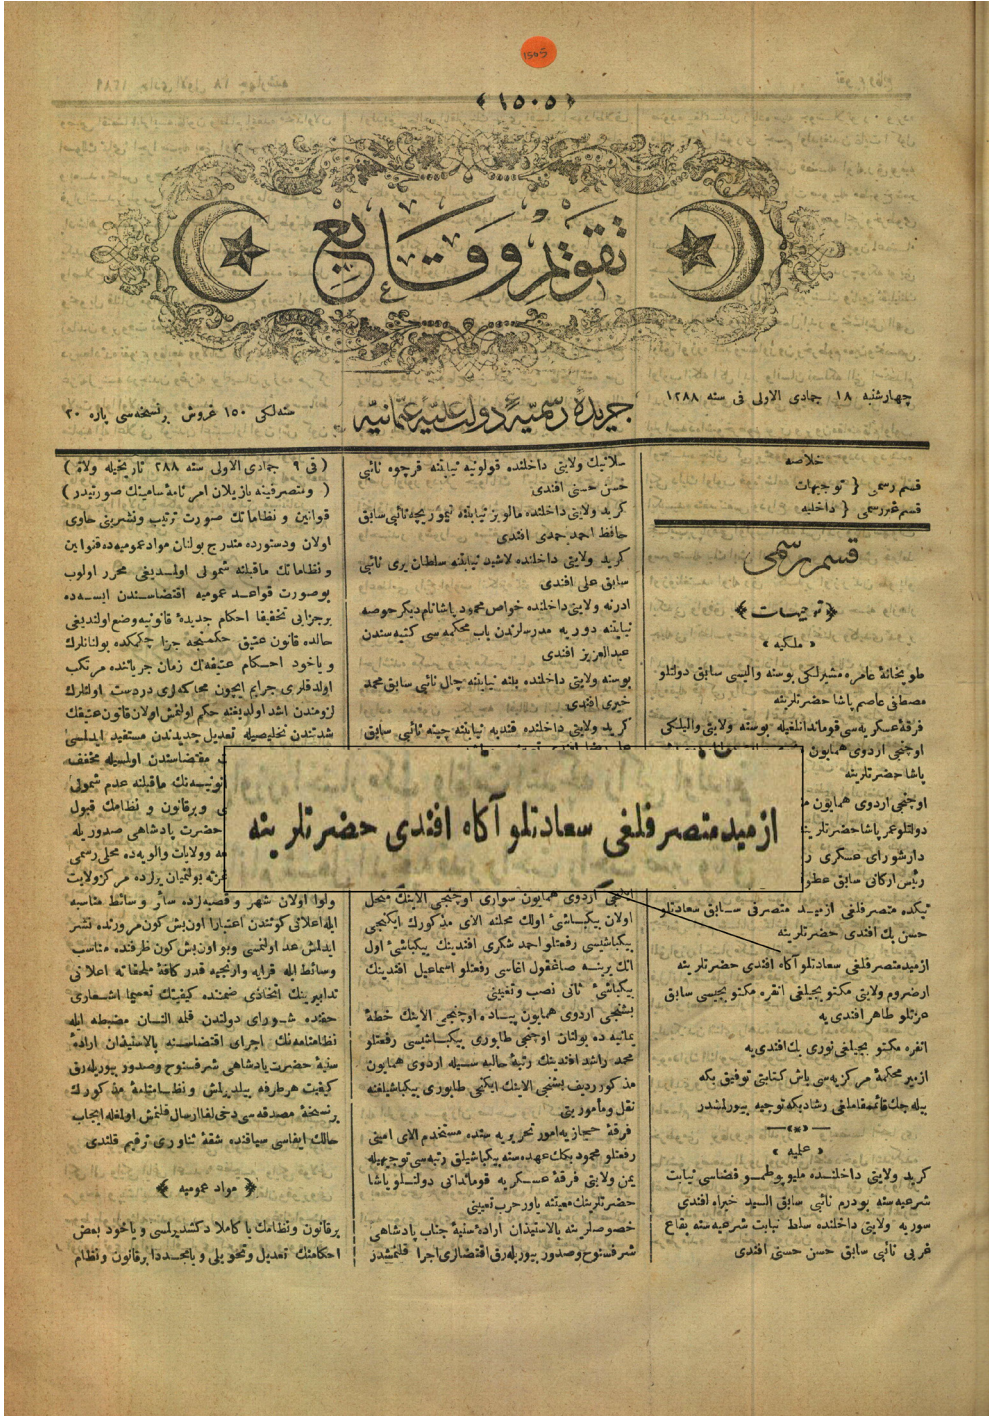 1505
﴿ ١٥٠٥ ﴾
تقويم وقايع
چهارشنبه ١٨ جمادى الاولى فى سنه ١٢٨٨
جريدۀ رسميۀ دولت عليۀ عثمانيه
سنه‌لكى ١٥٠ غروش بر نسخه‌سى ٣٠ پاره
خلاصه
قسم رسمى { توجيهات
قسم غيررسمى { داخليه
قسم رسمى
﴿ توجيهات ﴾
« ملكيه »
طوپخانۀ عامره مشيرلكى بوسنه واليسى سابق دولتلو
مصطفى عاصم پاشا حضرتلرينه
فرقۀ عسكريه‌سى قوماندانلغيله بوسنه ولايتى واليلكى
اوچنجى اردوى همايون
پاشا حضرتلرينه
اوچنجى اردوى همايون
دولتلو عمر پاشا حضرتلرينه
دارشوراى عسكرى
رئيس اركانى سابق
نيكده متصرفلغى ازميد متصرفى سابق سعادتلو
حسن بك افندى حضرتلرينه
ازميد متصرفلغى سعادتلو آكاه افندى حضرتلرينه
ارضروم ولايتى مكتوبجيلغى انقره مكتوبجيسى سابق
عزتلو طاهر افندى‌يه
انقره مكتوبجيلغى نورى بك افندى‌يه
ازمير محكمۀ مركزيه‌سى باش كتابتى توفيق بكه
بيله‌جك قائممقاملغى رشاد بكه توجيه بيورلمشدر
« علميه »
كريد ولايتى داخلنده ميلوپوطمو قضاسى نيابت
شرعيه‌سنه بودرم نائبى سابق السيد خيرالله افندى
سوريه ولايتى داخلنده سلط نيابت شرعيه‌سنه بقاع
غربى نائبى سابق حسن حسنى افندى
سلانيك ولايتى داخلنده قولونيه نيابتنه قرچوه نائبى
حسن حسنى افندى
كريد ولايتى داخلنده مالويز نيابتنه تيمور بيجه نائبى سابق
حافظ احمد حمدى افندى
كريد ولايتى داخلنده لاشيد نيابتنه سلطان يرى نائبى
سابق على افندى
ادرنه ولايتى داخلنده خواص محمود پاشا نام ديكر حوصه
نيابتنه دوريه مدرسلرندن باب محكمه‌سى كتبه‌سندن
عبدالعزيز افندى
بوسنه ولايتى داخلنده بلنه نيابتنه چال نائبى سابق محمد
خيرى افندى
كريد ولايتى داخلنده قنديه نيابتنه چينه نائبى سابق
ازميد متصرفلغى سعادتلو آكاه افندى حضرتلرينه
ايكنجى اردوى همايون سوارى اوچنجى الاينك منحل
اولان بيكباشئ اولك محلنه الاى مذكورك ايكنجى
بيكباشيسى رفعتلو احمد شكرى افندينك بيكباشئ اول
انك يرينه صاغقول اغاسى رفعتلو اسماعيل افندينك
بيكباشئ ثانى نصب وتعيينى
بشنجى اردوى همايون پياده اوچنجى الاينك خطۀ
يمانيه ده بولنان اوچنجى طابورى بيكباشيسى رفعتلو
محمد راشد افندينك رتبۀ حاليه سيله اردوى همايون
مذكور رديف بشنجى الاينك ايكنجى طابورى بيكباشيلغنه
نقل ومأموريتى
فرقۀ حجازيه امور تحريريه سنده مستخدم الاى امينى
رفعتلو محمود بكك عهده سنه بيكباشيلق رتبه سى توجيهيله
يمن ولايتى فرقۀ عسكريه قوماندانى دولتلو پاشا
حضرتلرينك معيتنه ياور حرب تعيينى
خصوصلرينه بالاستيذان ارادۀ سنيۀ جناب پادشاهى
شرفسنوح وصدور بيوريله‌رق اقتضالرى اجرا قلنمشدر
( فى ٩ جمادى الاولى سنه ٢٨٨ تاريخيله ولاة )
( ومتصرفينه يازيلان امرنامۀ سامينك صورتيدر )
قوانين و نظاماتك صورت ترتيب ونشرينى حاوى
اولان ودستورده مندرج بولنان مواد عموميه ده قنوانين
و نظاماتك ماقبلنه شمولى اولمديغى محرر اولوب
بوصورت قواعد عموميه اقتضاسندن ايسه‌ده
برجزايى تخفيفا احكام جديدۀ قانونيه وضع اولنديغى
حالده قانون عتيق حكمنجه جزا چكمكده بولنانلرك
وياخود احكام عتيقه‌نك زمان جرياننده مرتكب
اولدقلرى جرايم ايچون محاكمه‌لرى دردست اولنلرك
لزومندن اشد اولديغنه حكم اولنمش اولان قانون عتيقك
شدتندن تخليصيله تعديل جديدندن مستفيد ايدلمسى
مقتضاسندن اولمسيله مخفف
قانونيه‌نك ماقبلنه عدم شمولى
وبرقانون و نظامك قبول
حضرت پادشاهى صدوريله
وولايات والويه‌ده محلى رسمى
غزته بولنميان يرلرده مركز ولايت
ولوا اولان شهر و قصبه‌لرده سائر وسائط مناسبه
ايله اعلانى كونندن اعتبارا اون بش كون مرورنده نشر
ايدلمش عد اولنمسى وبو اون بش كون ظرفنده مناسب
وسائط ايله قرايه وارنجيه قدر كافۀ ملحقاته اعلانى
تدابيرينك اتخاذى ضمننده كيفيتك تعميما اشعارى
حقنده شوراى دولتدن قلمه النان مضبطه ايله
نظامنامه‌نك اجراى اقتضاسنه بالاستيذان ارادۀ
سنيۀ حضرت پادشاهى شرفسنوح وصدور بيوريله‌رق
كيفيت هر طرفه بيلديرلمش ونظامنامۀ مذكورك
برنسخۀ مصدقه سى دخى لفا ارسال قلنمش اولمغله ايجاب
حالك ايفاسى سياقنده شقۀ ثناورى ترقيم قلندى
﴿ مواد عموميه ﴾
برقانون ونظامك ياكاملا دكشديرلمسى وياخود بعض
احكامنك تعديل وتحويلى ويامجددا برقانون ونظام